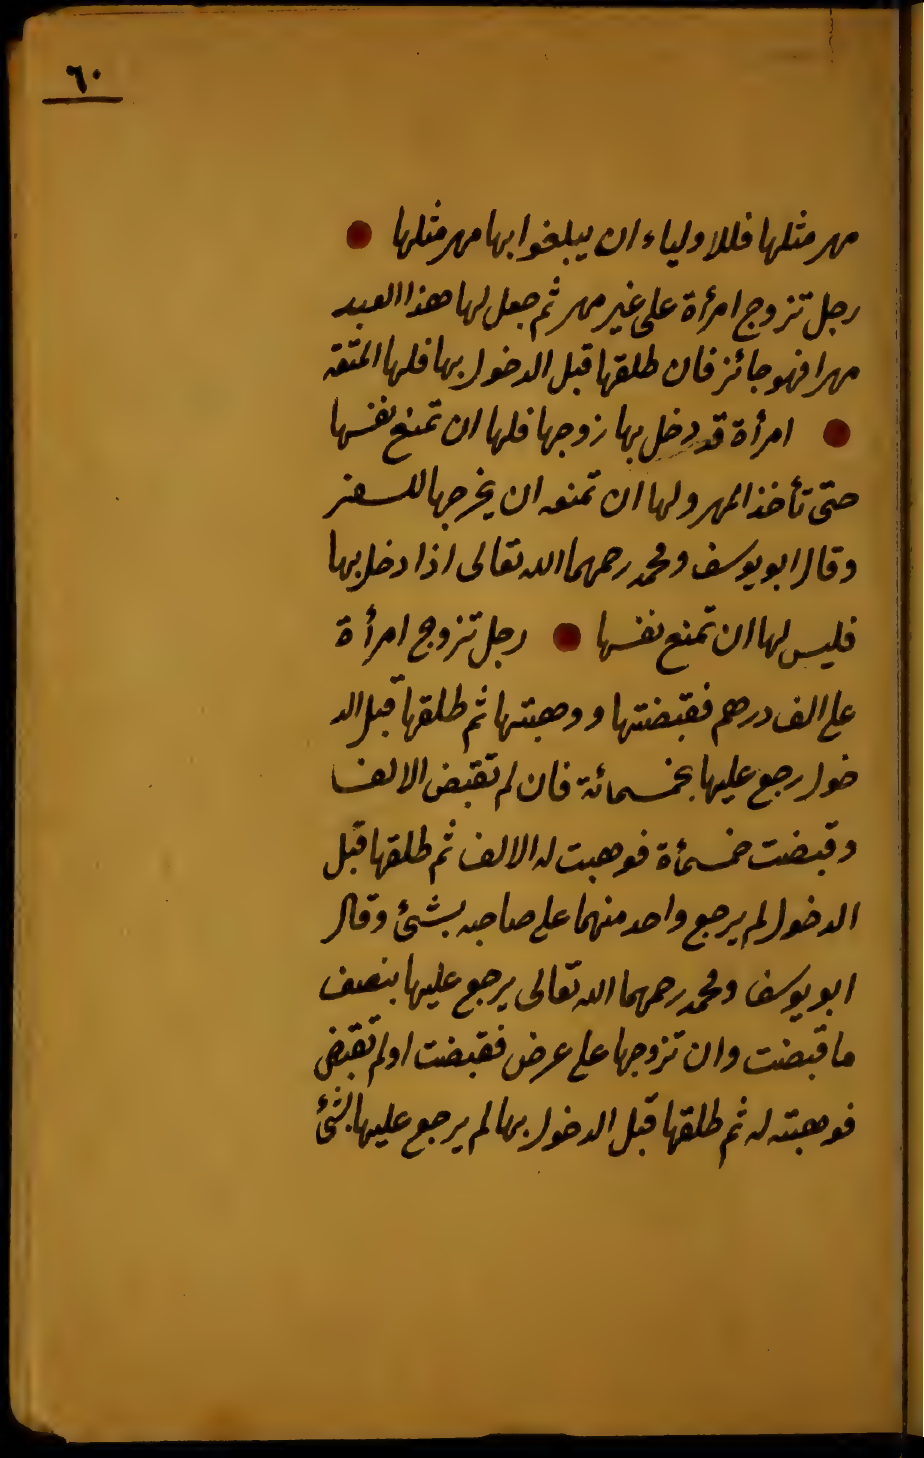 ٦٠
مهر مثلها فللاولياء ان يبلغوا بها مهر مثلها
رجل تزوج امرأة على غير مهر ثم جعل لها هذا العبد
مهرا فهو جائز فان طلقها قبل الدخول بها فلها المتعة
امرأة قد دخل بها زوجها فلها ان تمنع نفسها
حتى تأخذ المهر ولها ان تمنعه ان يخرجها للسفر
وقال ابو يوسف ومحمد رحمهما الله تعالى اذا دخل بها
فليس لها ان تمنع نفسها رجل تزوج امرأة
على الف درهم فقبضتها ووهبتها ثم طلقها قبل الد
خول رجع عليها بخمسمائة فان لم تقبض الالف
وقبضت خمسمأة فوهبت له الالف ثم طلقها قبل
الدخول لم يرجع واحد منهما على صاحبه بشئ وقال
ابو يوسف ومحمد رحمهما الله تعالى يرجع عليها بنصف
ما قبضت وان تزوجها على عرض فقبضت اولم تقبض
فوهبته له ثم طلقها قبل الدخول بها لم يرجع عليها بشئ